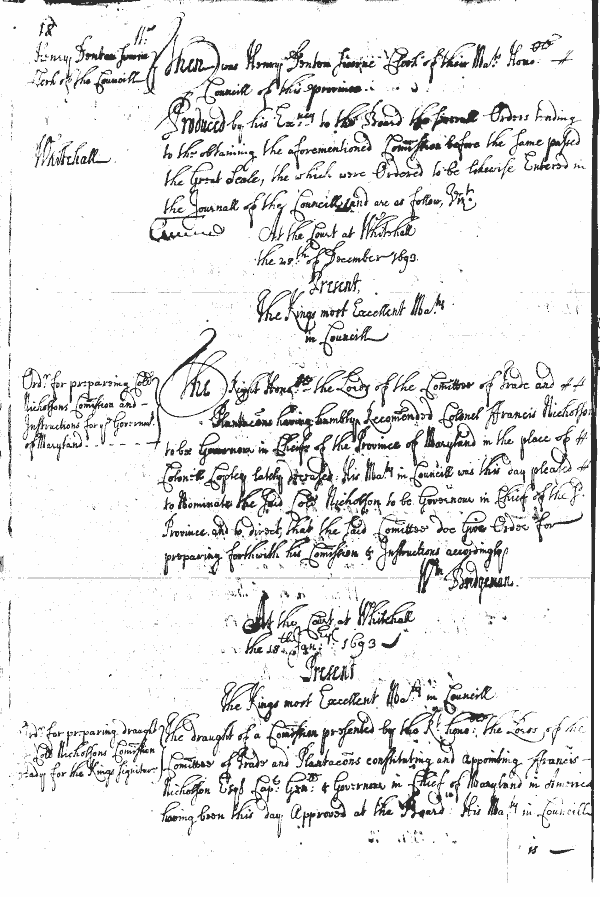 18
Henry Denton sworne
Clerk of the Councill
Then was Henry Denton sworne Clerk of their Ma.ts Hono:ble
Councill of this province
Produced by his Ex:ncy to the Board the severall Orders tending
to the obtaining the aforementioned Comission before the same passed
Whitehall
the Great Seale, the which were Ordered to be likewise Entered in
the Journall of the Councill and are as follow, Viz.t
At the Court at Whitehall
the 28.th of December 1693.
Present
The Kings most Excellent Ma.ty
in Councill
Ord.r for preparing Coll.
Nicholsons Comission and
Instructions for y.e Governm.t
of Maryland
The Right Hono:ble the Lords of the Comittee of Trade and
Plantacons having humbly Recomended Colonel Francis Nicholson
to be Governour in Chiefe of the Province of Maryland in the place of
Colonel Copley lately deceased: His Ma.ty in Councill was this day pleased
to Nominate the said Coll. Nicholson to be Governour in Chief of the s.d
Province and to direct, that the said Comittee doe Give Order for
preparing forthwith his Comission & Instructions accordingly
W.m Bridgeman.
At the Court at Whitehall
the 18.th 1693
Present
The Kings most Excellent Ma.ty in Councill
Ord.r for preparing draught
Coll Nicholsons Comission
ready for the Kings signature
The draught of a Comission presented by the R.t hono:ble the Lords of the
Comittee of Trade and Plantacons constituting and Appointing Francis
Nicholson Esq.r Cap.t Gen.ll & Governour in Chief of Maryland in America
having been this day Approved at the Board: His Ma.ty in Councill
is